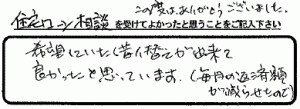 この度はありがとうございました。
住宅ローン相談を受けてよかったと思うことをご記入下さい
希望していた借り替えが出来て
良かったと思っています。(毎月の返済額
が減らせたので)